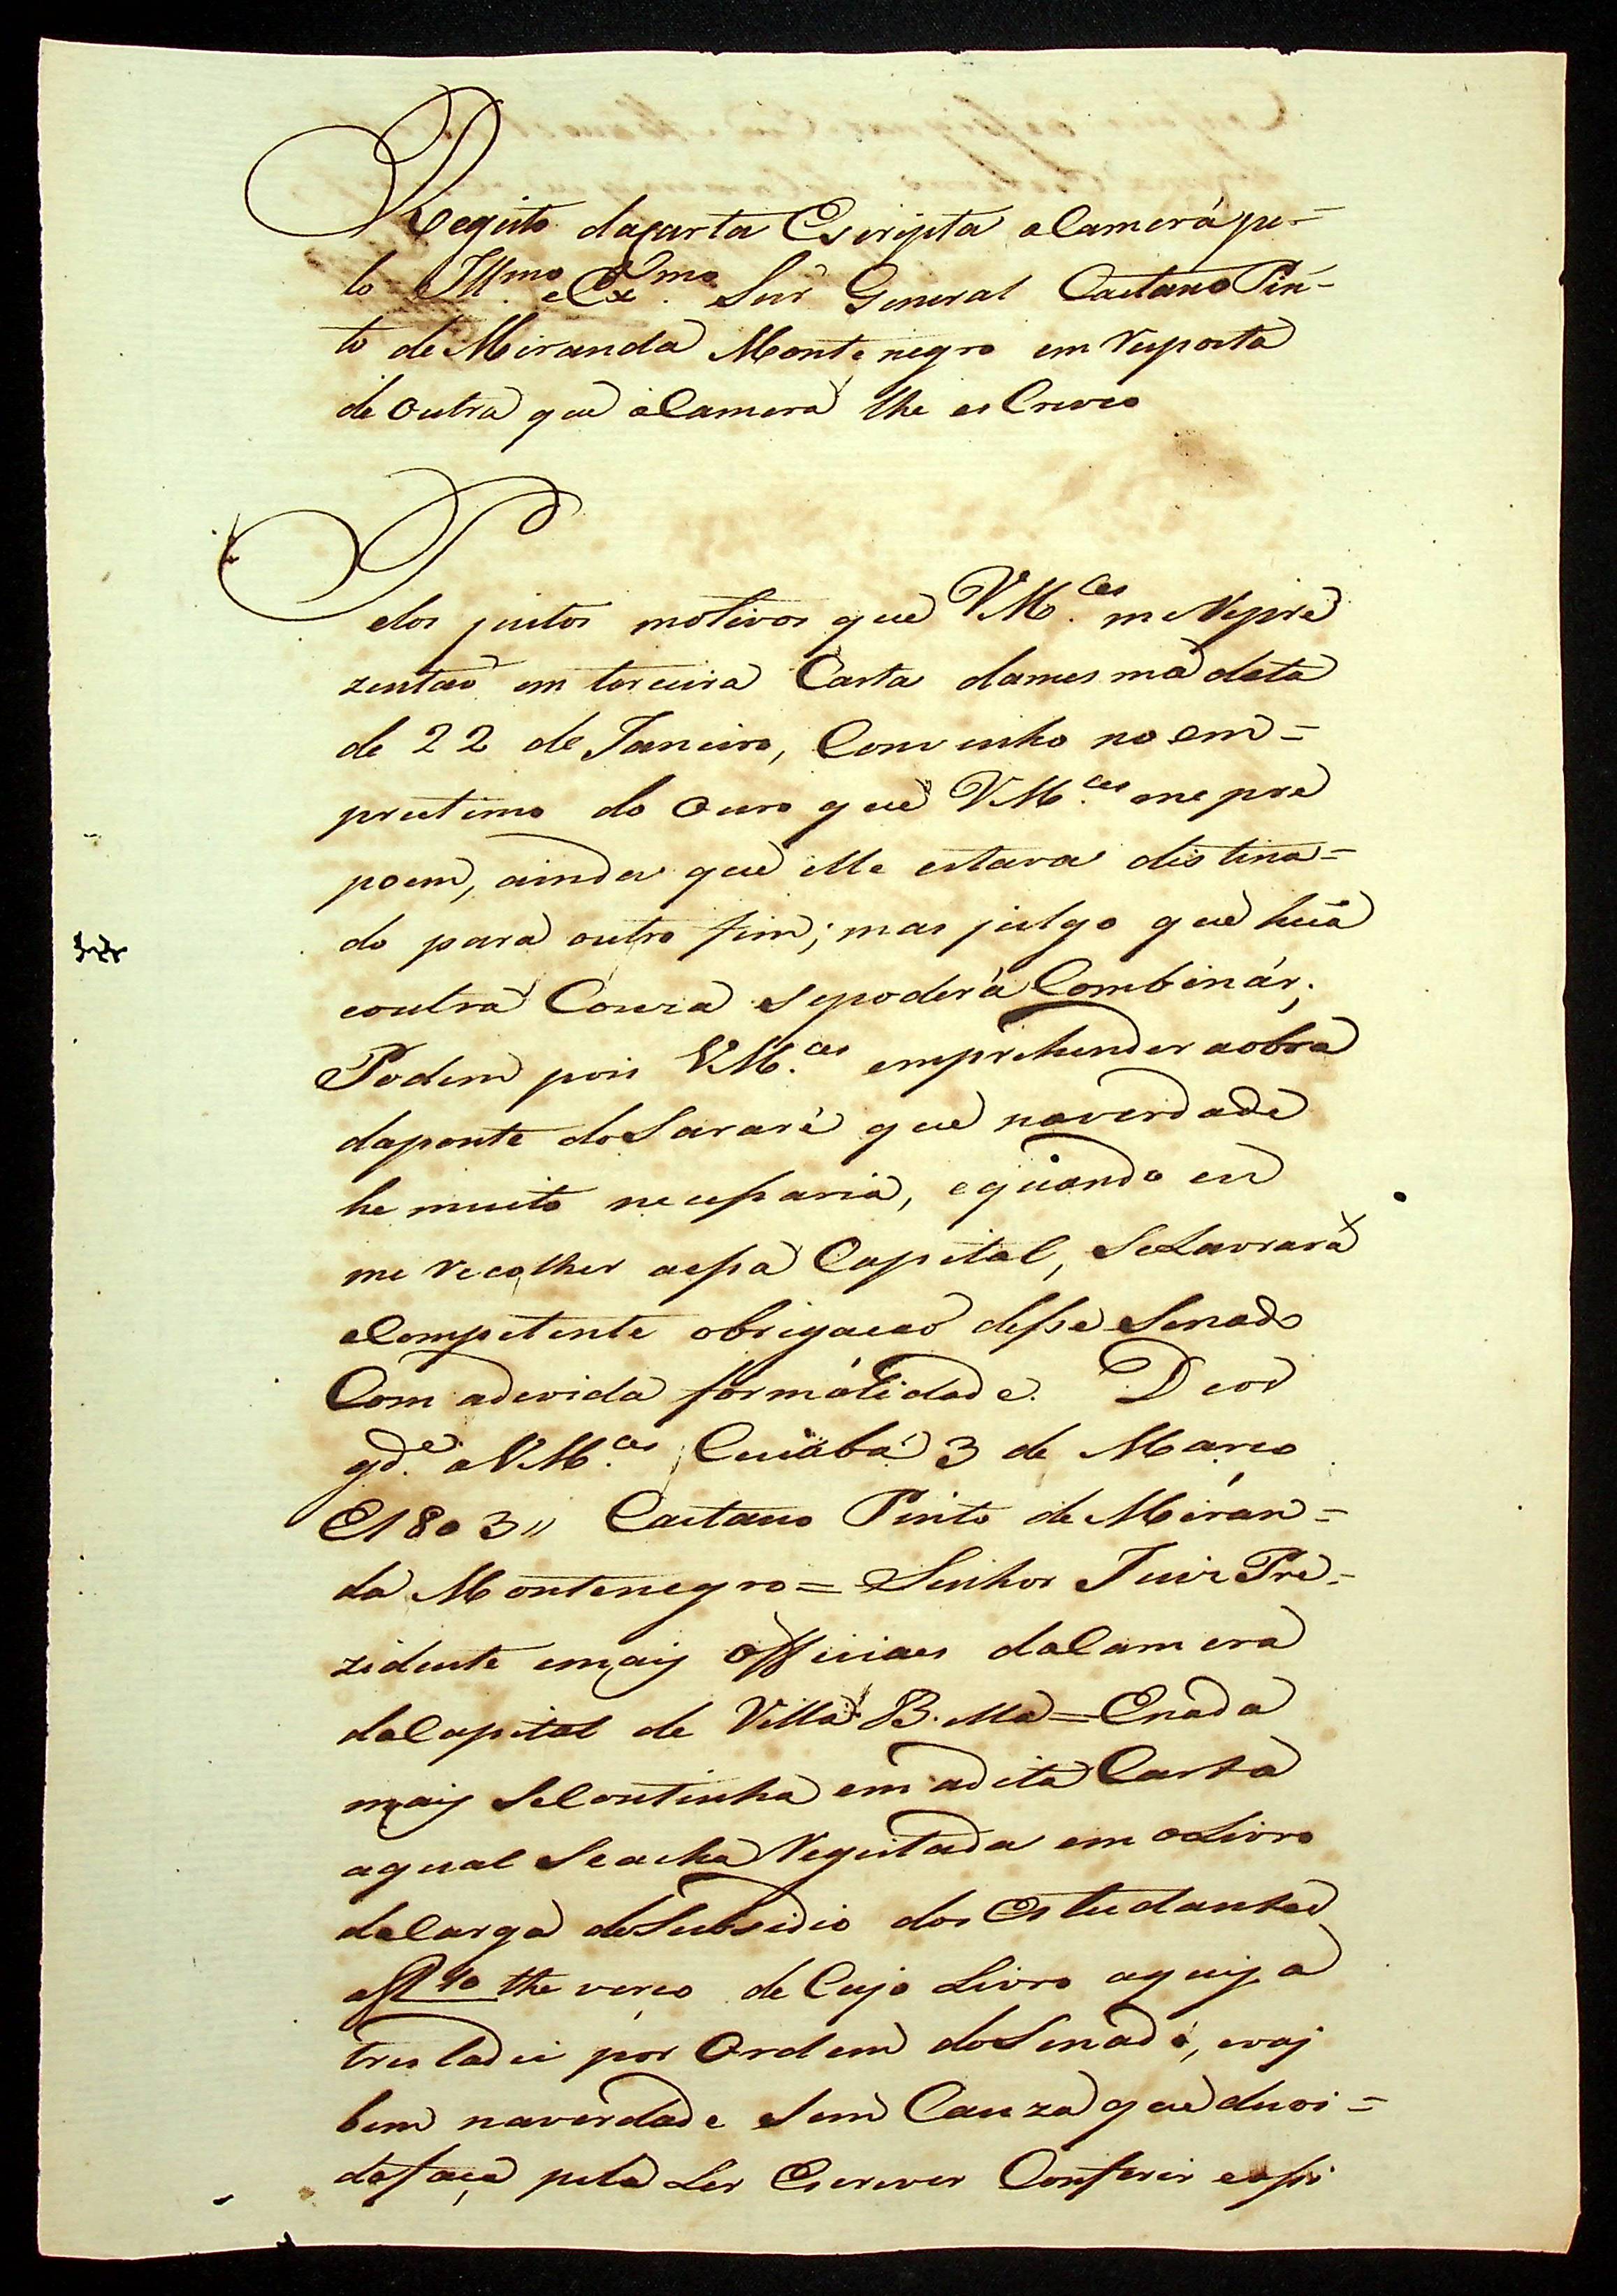 Registo dacarta Escripta aCamera pe=
lo Illmo. e Exmo. Snr General Caetano Pin=
to de Miranda Montenegro em resposta
de outra que aCamera lhe esCreveo
Pelos justos motivos que VM.ces me Repre
zentaõ em terceira Carta damesma data
de 22 de Janeiro, Convenho no em=
prestimo do Ouro que VM.ces me pro
poem, ainda que elle estava distina=
do para outro fim; mas julgo que huã
eoutra Couza sepoderá Combinár.
Podem pois VM.ces emprehender aobra
daponte doSararé que naverdade
he muito necessaria, equando eu
me recolher aessa Capital, seLavrará
aCompetente obrigacaõ desse Senado
Com adevida formálidade. Deos
gd.e a VM.ces Cuiabá 3 de Março
de 1803,, Caetano Pinto de Miran=
da Montenegro = Senhor Juiz Pre=
zidente emais Officiaes daCamera
daCapital de Villa Bella = Enada
mais seContinha em adita Carta
aqual seacha Registada em oLivro
daCarga doSubsidio dos Estudantes
a f 10 the verço de Cujo Livro aqui a
tresladei por Ordem doSenado, evaj
bem naverdade sem Cauza que duvi=
dafaça pela Ler Escrever Conferir eassi